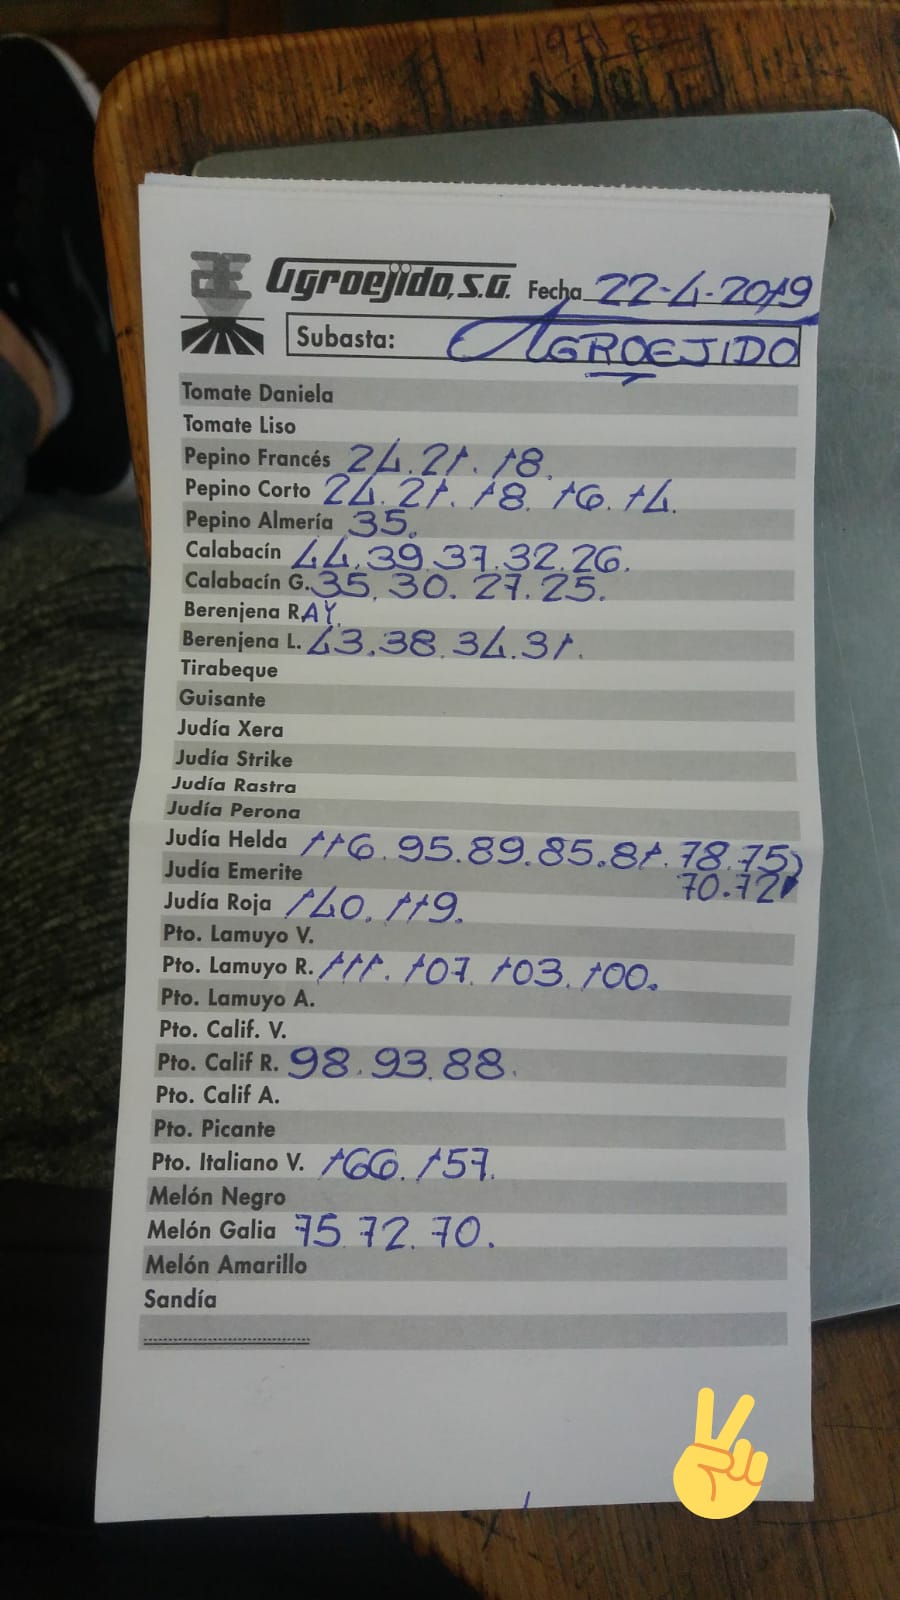 Agroejido, S.A. Fecha 22-4-2019
Subasta: AGROEJIDO
Tomate Daniela
Tomate Liso
Pepino Francés 24.21.18.
Pepino Corto 24.21.18.16.14.
Pepino Almería 35.
Calabacín 44.39.37.32.26.
Calabacín G. 35.30.27.25.
Berenjena RAY.
Berenjena L. 43.38.34.31.
Tirabeque
Guisante
Judía Xera
Judía Strike
Judía Rastra
Judía Perona
Judía Helda 116.95.89.85.81.78.75)
Judía Emerite 70.72
Judía Roja 140.119.
Pto. Lamuyo V.
Pto. Lamuyo R. 111.107.103.100.
Pto. Lamuyo A.
Pto. Calif. V.
Pto. Calif R. 98.93.88.
Pto. Calif A.
Pto. Picante
Pto. Italiano V. 166.157.
Melón Negro
Melón Galia 75.72.70.
Melón Amarillo
Sandía